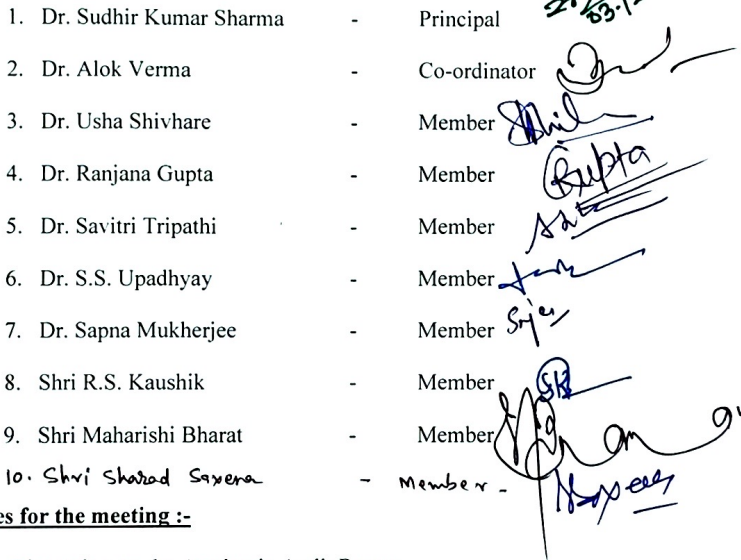 1. Dr. Sudhir Kumar Sharma - Principal
2. Dr. Alok Verma - Co-ordinator
3. Dr. Usha Shivhare - Member
4. Dr. Ranjana Gupta - Member RGupta
5. Dr. Savitri Tripathi - Member
6. Dr. S.S. Upadhyay - Member
7. Dr. Sapna Mukherjee - Member
8. Shri R.S. Kaushik - Member
9. Shri Maharishi Bharat - Member
10. Shri Sharad Saxena - Member -
es for the meeting :-